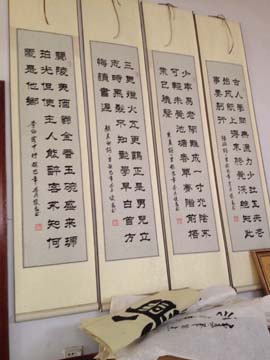 古人學問無遺力少壯工夫老
始成紙上得来終覺淺絕知此
事要躬行
少年易老學難成一寸光陰不
可輕未覺池塘春草夢階前梧
葉已秋聲
三更燈火五更鷄正是男兒立
志時黑髮不知勤學早白首方
悔讀書遲
蘭陵美酒鬱金香玉碗盛来琥
珀光但使主人能醉客不知何
處是他鄉
李白客中行